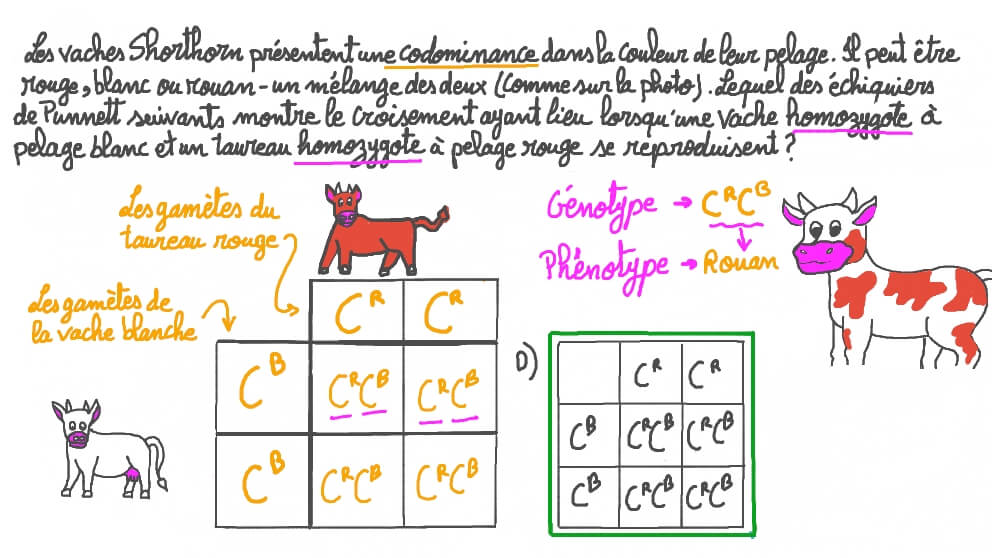 Les vaches Shorthorn présentent une codominance dans la couleur de leur pelage. Il peut être
rouge, blanc ou rouan - un mélange des deux (comme sur la photo). Lequel des échiquiers
de Punnett suivants montre le croisement ayant lieu lorsqu'une vache homozygote à
pelage blanc et un taureau homozygote à pelage rouge se reproduisent ?
Les gamètes du
taureau rouge
Génotype → CᴿCᴮ
Phénotype → Rouan
Les gamètes de
la vache blanche
Cᴿ Cᴿ
Cᴮ CᴿCᴮ CᴿCᴮ
Cᴮ CᴿCᴮ CᴿCᴮ
D)
Cᴿ Cᴿ
Cᴮ CᴿCᴮ CᴿCᴮ
Cᴮ CᴿCᴮ CᴿCᴮ